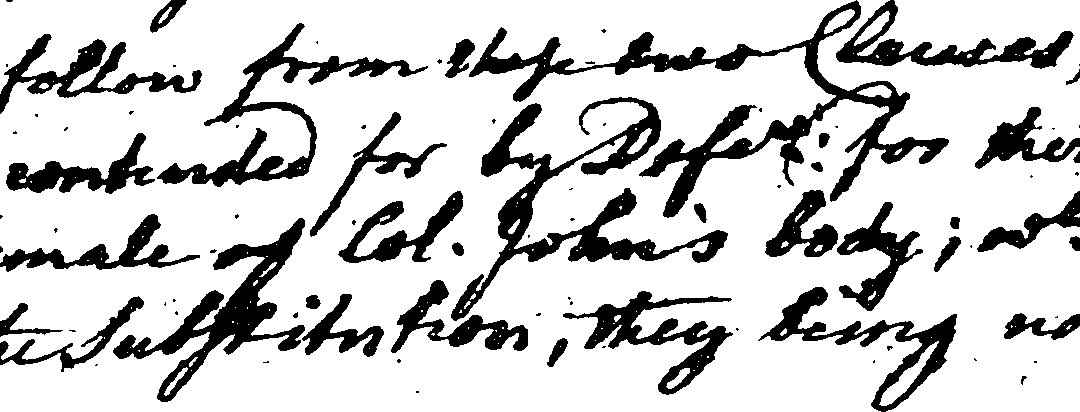 follow from these two Clauses,
contended for by Defer.t: for
male of Col. John's body; wh.
Substitution, they being